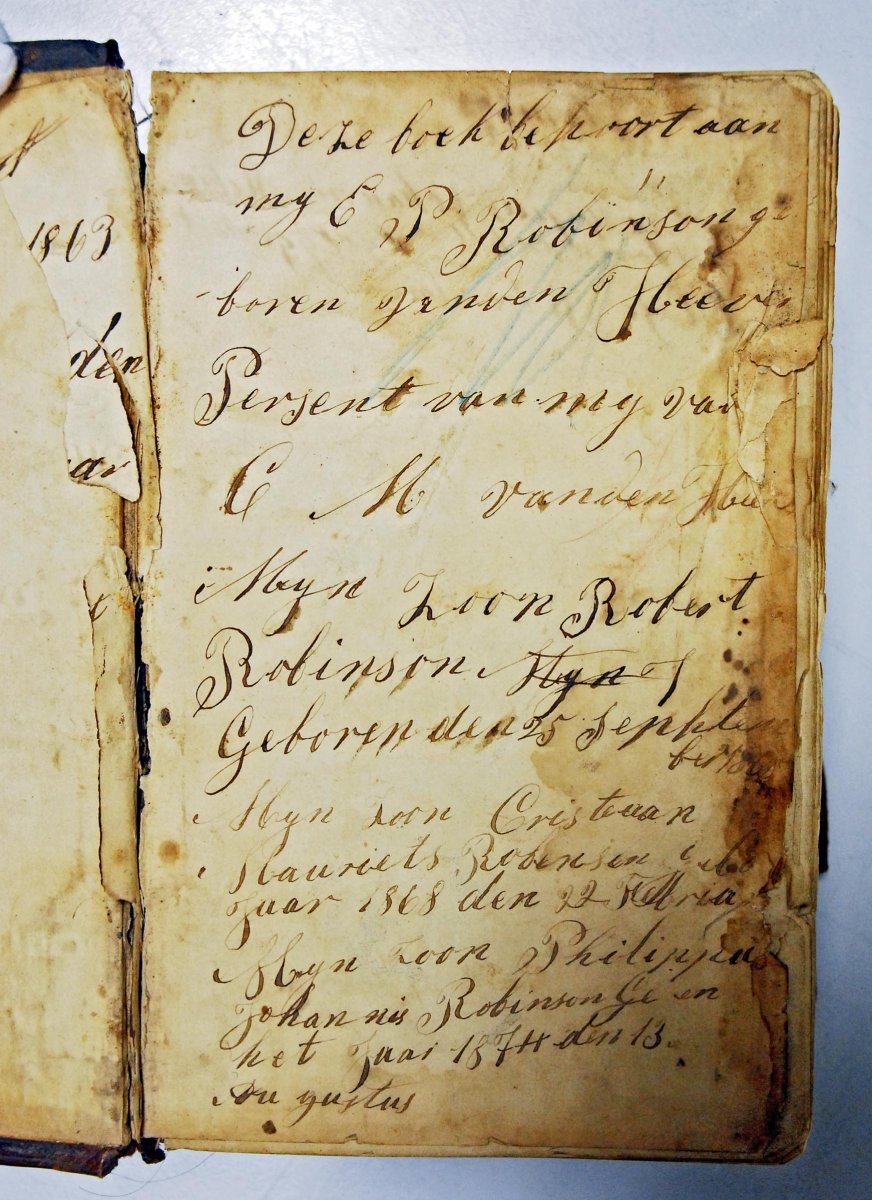 1863
den
ar
Deze boek behoort aan
my E P Robinson ge
boren vanden Heever
Persent van my vad
C M vanden Hee
Myn Zoon Robert
Robinson Myn
Geboren den 25 Sephtem
ber
Myn zoon Cristeaan
Mauriets Robensen
Jaar 1868 den 22
Myn zoon Philippus
Johannis Robinson Ge en
het Jaar 1874 den 13
Au gustus